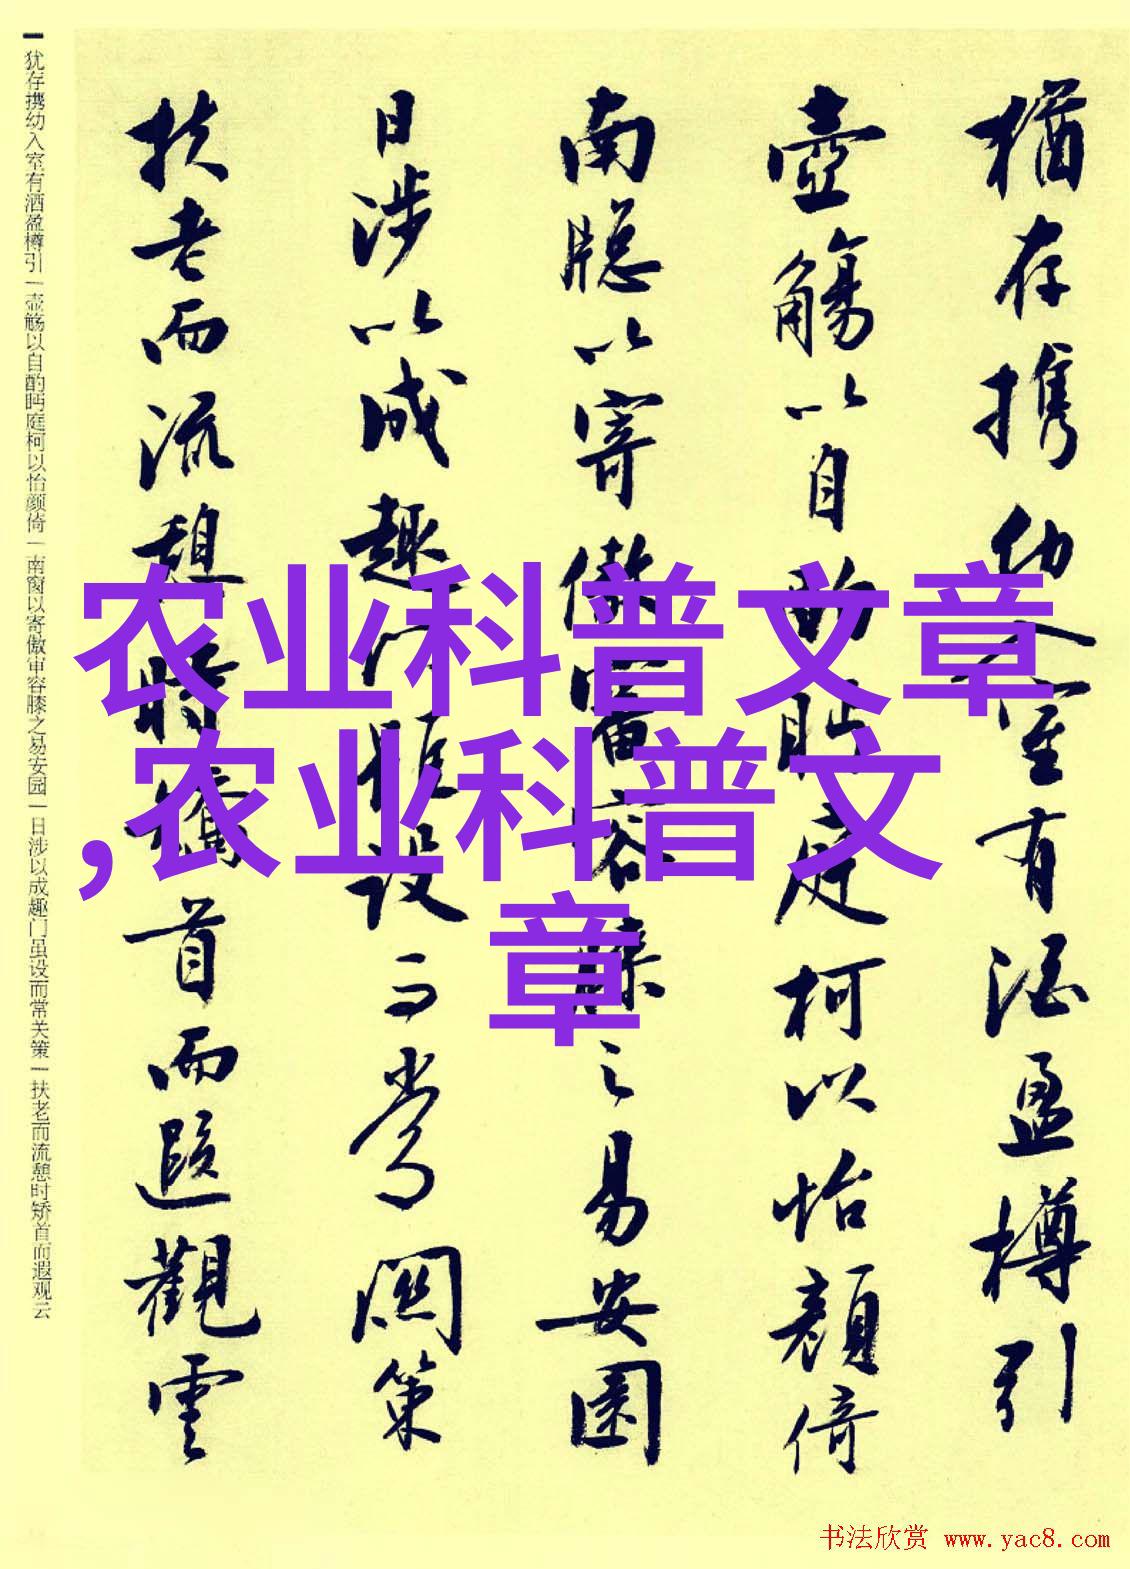 猶存攜幼入室有酒盈樽引
壺觴以自酌眄庭柯以怡顏倚
南窗以寄傲審容膝之易安園
日涉以成趣門雖設而常關策
扶老而流憩時矯首而遐觀雲
农业科普文章
,农业科普文
章
犹存携幼入室有酒盈樽引|壶觞以自酌眄庭柯以怡颜倚|南窗以寄傲审容膝之易安园|日涉以成趣门虽设而常关策|扶老而流憩时矫首而遐观云
书法欣赏 www.yac8.com